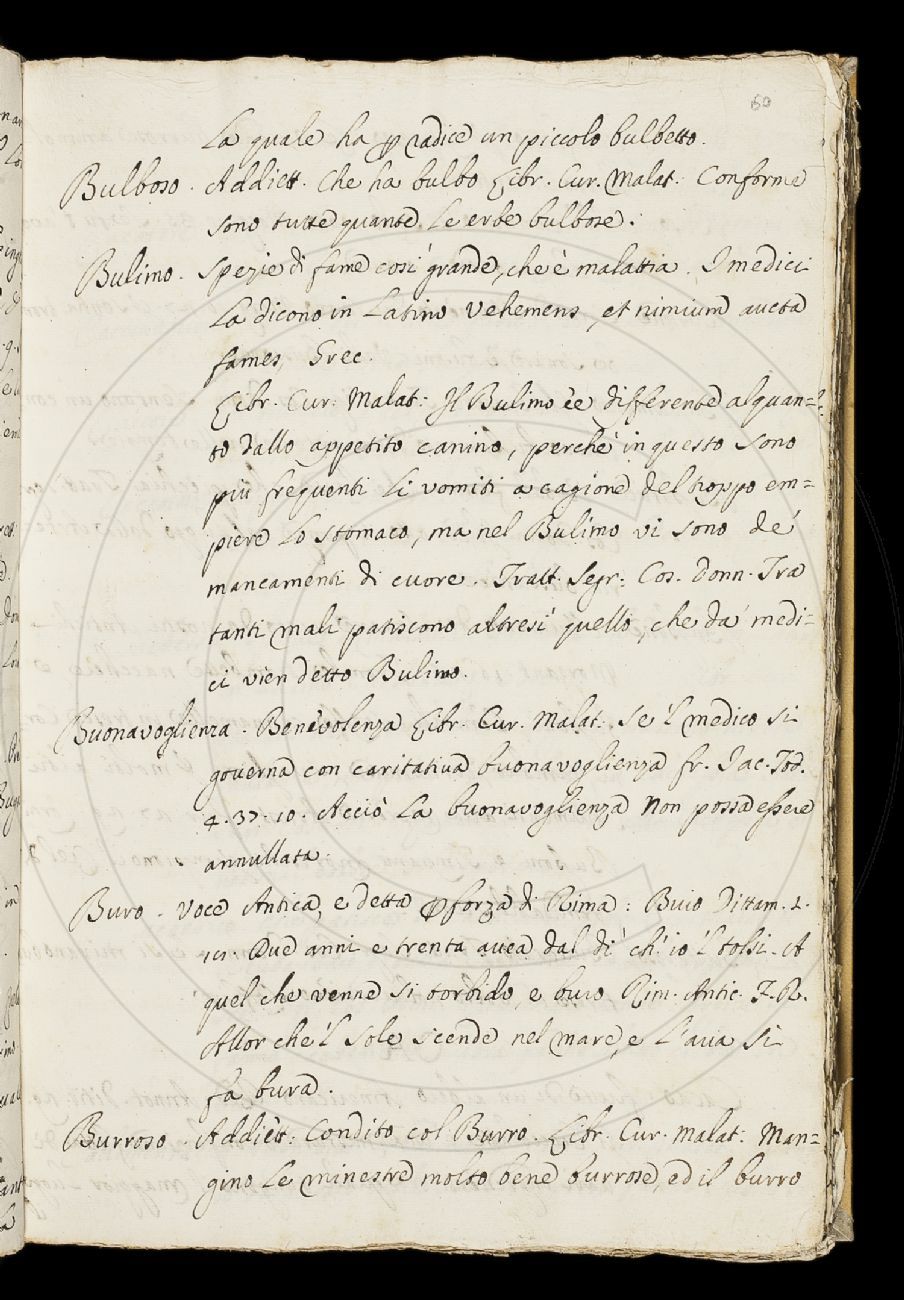 60
La quale ha ꝑ radice un piccolo bulbetto.
Bulboso. Addiett. Che ha bulbo Libr. Cur. Malat: Conforme
sono tutte quante le erbe bulbose.
Bulimo. Spezie di fame così grande, che è malattia. I medici
La dicono in Latino Vehemens, et nimium aucta
fames, Grec.
Libr. Cur: Malat: Il Bulimo èe differente alquan=
to dallo appetito canino, perche in questo sono
più frequenti li vomiti a cagione del troppo em=
piere lo stomaco, ma nel Bulimo vi sono de'
mancamenti di cuore. Tratt. Segr: Cos. Donn. Tra
tanti mali patiscono altresì quello, che da' medi=
ci vien detto Bulimo.
Buonavoglienza. Benevolenza Libr. Cur. Malat. Se 'l medico si
governa con caritativa buonavoglienza fr. Iac. Tod.
4. 37. 10. Acciò La buonavoglienza non possa essere
annullata.
Buro. Voce Antica, e detta ꝑ forza di Rima: Buio Dittam. 1.
Due anni e trenta avea dal dì ch' io 'l tolsi. A
quel che venne si torbido, e buro Rim. Antic. F. R.
Allor che 'l sole scende nel mare, e L'aria si
fà bura.
Burroso. Addiett: Condito col Burro. Libr. Cur. Malat: Man=
gino le minestre molto bene burrose, ed il burro